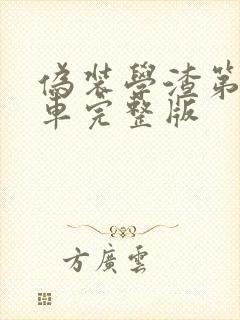 偽裝學渣第
車完整版
方廣雲